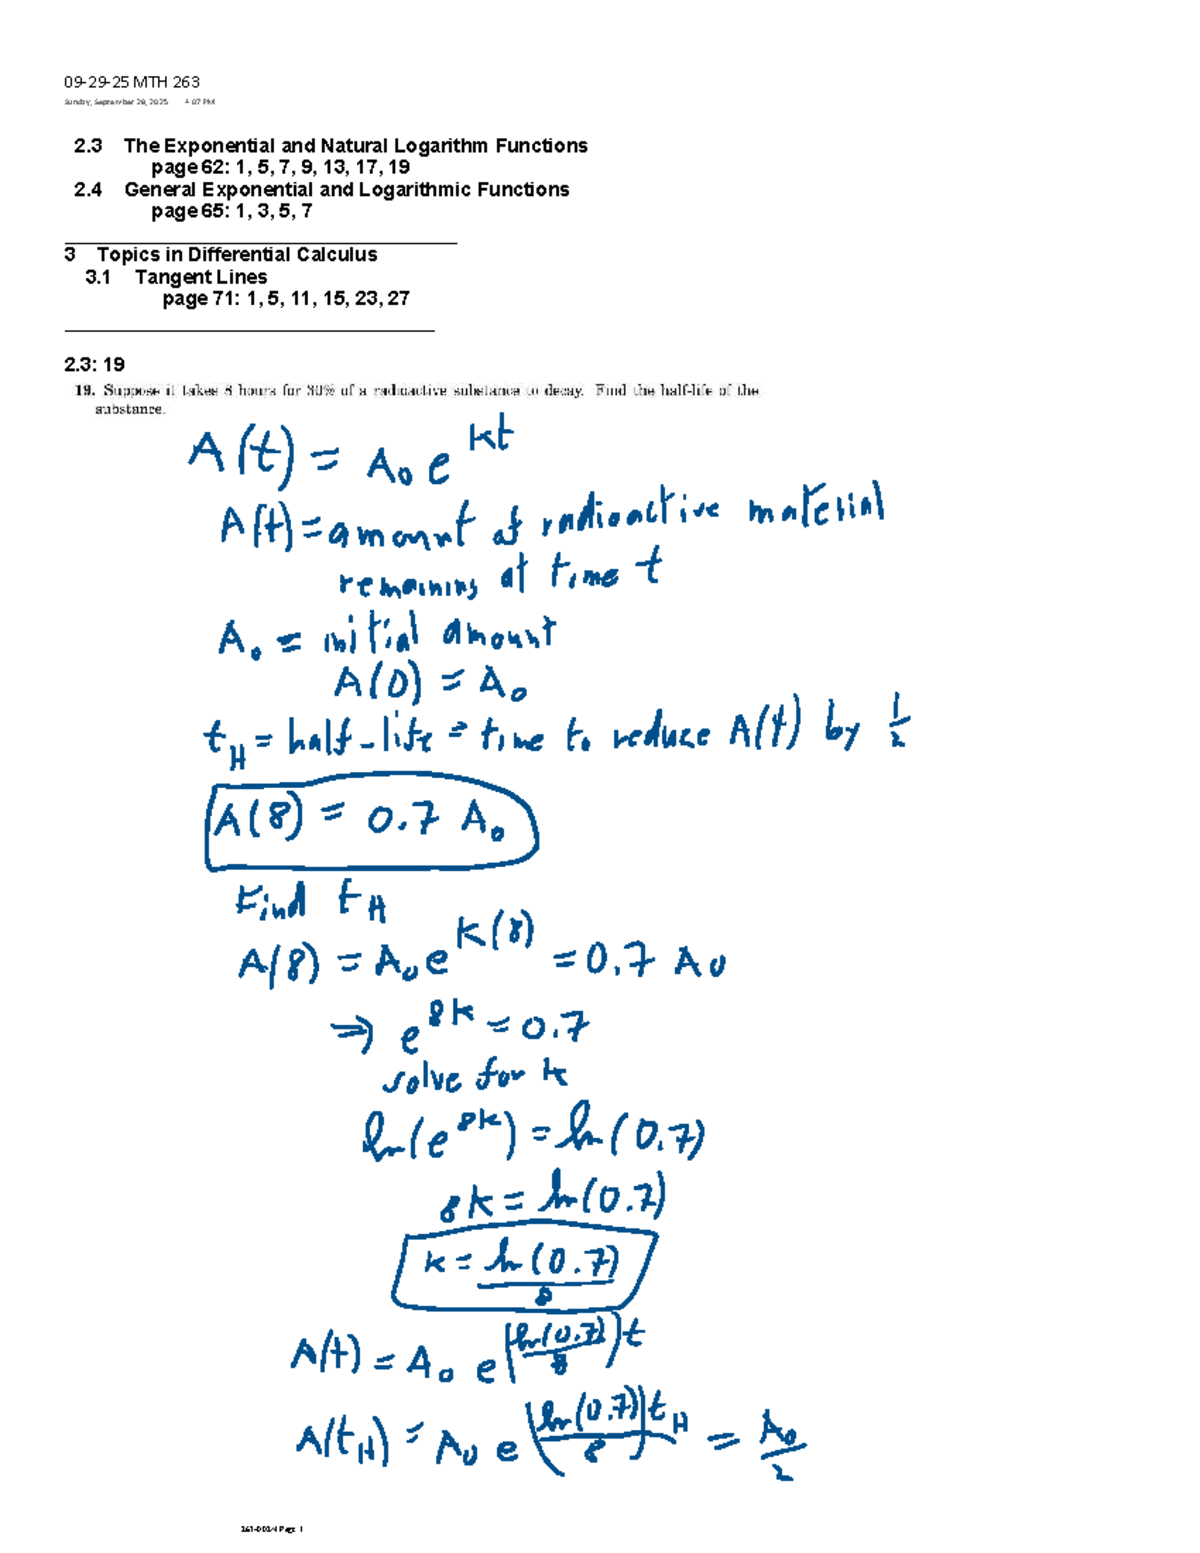 09-29-25 MTH 263
Sunday, September 28, 2025 4:07 PM
2.3 The Exponential and Natural Logarithm Functions
page 62: 1, 5, 7, 9, 13, 17, 19
2.4 General Exponential and Logarithmic Functions
page 65: 1, 3, 5, 7
3 Topics in Differential Calculus
3.1 Tangent Lines
page 71: 1, 5, 11, 15, 23, 27
2.3: 19
19. Suppose it takes 8 hours for 30% of a radioactive substance to decay. Find the half-life of the
substance.
A(t) = A₀ e^{kt}
A(t) = amount of radioactive material
remaining at time t
A₀ = initial amount
A(0) = A₀
t_H = half-life = time to reduce A(t) by 1/2
A(8) = 0.7 A₀
Find t_H
A(8) = A₀ e^{k(8)} = 0.7 A₀
⇒ e^{8k} = 0.7
solve for k
ln(e^{8k}) = ln(0.7)
8k = ln(0.7)
k = ln(0.7)/8
A(t) = A₀ e^{(ln(0.7)/8)t}
A(t_H) = A₀ e^{(ln(0.7)/8)t_H} = A₀/2
Page 1